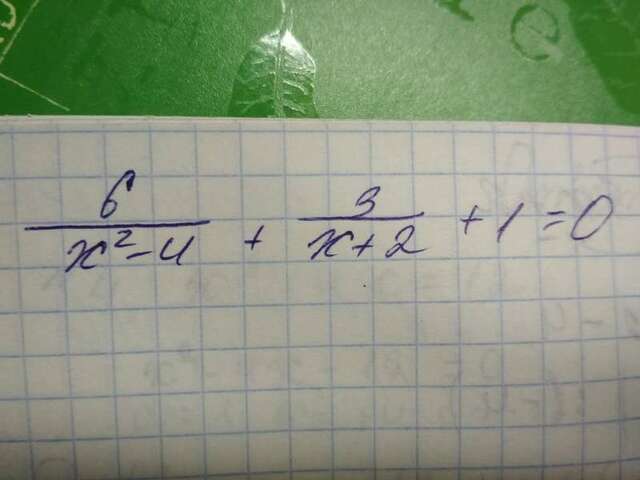 6/(x²-4) + 3/(x+2) + 1 = 0